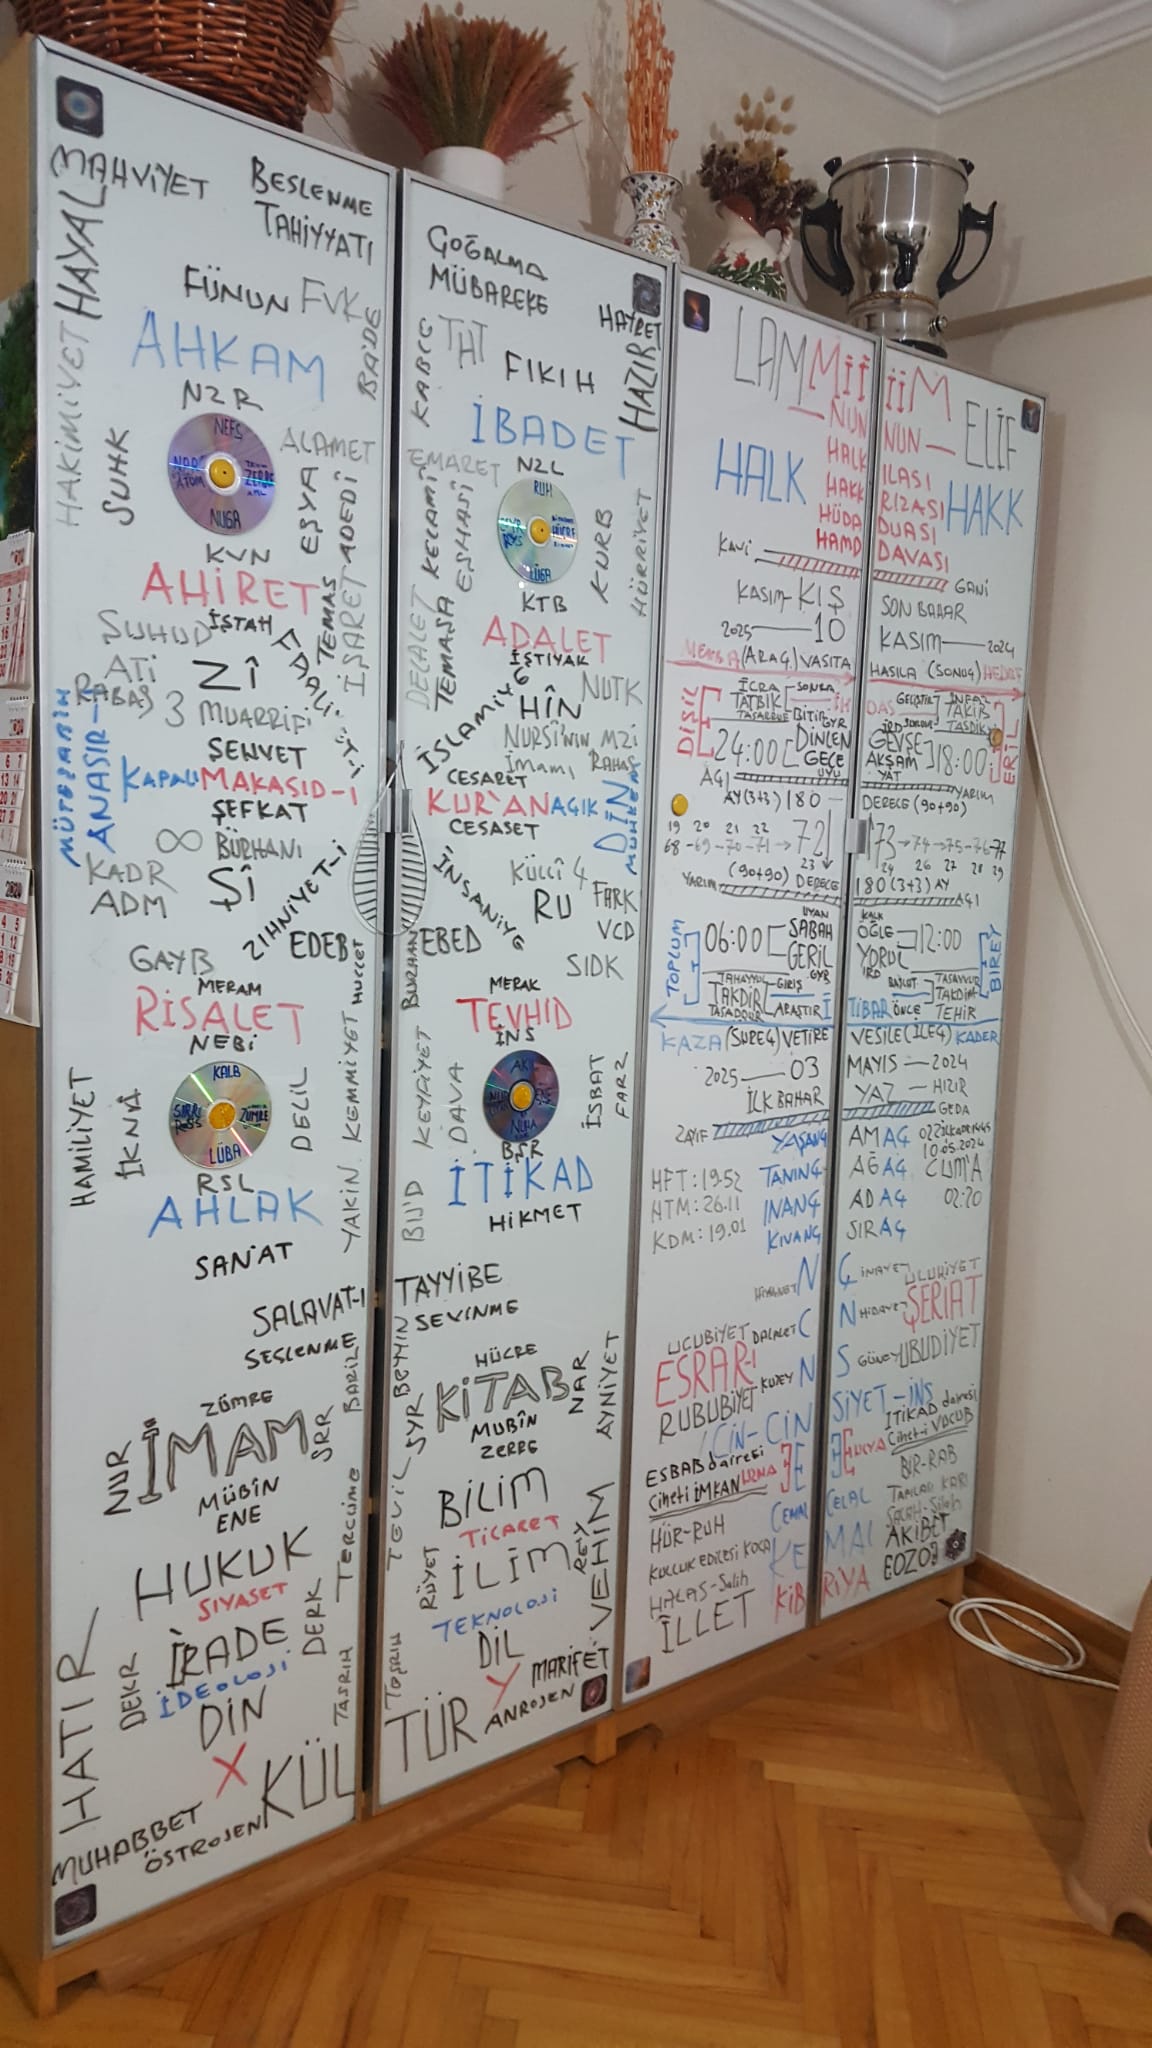 MAHVİYET
BESLENME
TAHİYYATI
HAYAL
HAKİMİYET
FÜNUN
AHKAM
BA'DE
NZR
NEFS
NUGA
SUHK
ALAMET
EŞYA
ADEDİ
KVN
AHİRET
İŞTAH
TEMAS
İŞARET
ŞUHUD
ATİ
RABAŞ
Zİ
3
MUARRİF
ŞEHVET
KAPALI MAKASID-I
ŞEFKAT
∞ BÜRHANI
ANASIR-I
KADR
ADM
Şİ
ZİHNİYET-İ
EDEB
HÜCCET
GAYB
MERAM
RİSALET
NEBİ
KALB
ZÜMRE
LÜBA
HAMİLİYET
İKNÂ
DELİL
KEMMİYET
YAKİN
RSL
AHLAK
SAN'AT
SALAVAT-I
SESLENME
BARİL
ZÜMRE
İMAM
NUR
SRR
MÜBİN
ENE
HUKUK
SİYASET
İRADE
İDEOLOJİ
DİN
X
DERK
DEKR
TERCÜME
TASRIH
HATIR
KÜL
MUHABBET
ÖSTROJEN
ÇOĞALMA
MÜBAREKE
HAYRET
HAZIRET
KABLE
THT
FIKIH
İBADET
EMARET
NZL
RUH
HÜCRE
KELAMİ
EŞHASI
KURB
HÜRRİYET
KTB
ADALET
İŞTİYAK
DELALET
TEMAŞA
İSLAMİYE
6
HÎN
NUTK
NURSİ'NİN MZİ
İmamı RAHAŞ
CESARET
KUR'AN AÇIK
CESASET
DİN
İNSANİYE
KÜLLÎ 4
RU
FARK
VCD
EBED
BURHAN
SIDK
MERAK
TEVHİD
İNS
KEYFİYET
DAVA
İSBAT
FARZ
BSR
İTİKAD
HİKMET
BU'D
TAYYİBE
SEVINME
HÜCRE
KİTAB
MUBÎN
ZERRE
NAR
AYNİYET
BEYHİN
SYR
TEVİL
BİLİM
TİCARET
İLİM
REY
VEHİM
RÜYET
TEKNOLOJİ
DİL
Y
MARİFET
ANROJEN
TÜR
LAM MİÎ
NUN
HALK
HALK
HAKK
HÜDA
HAMD
KAVİ
KASIM KIŞ
2025 — 10
(ARAÇ) VASITA
DİŞİL
İCRA
TATBİK
TASARRUF
SONRA
BİTİR
24:00
DİNLEN
GECE
UYU
AÇI
AY(3+3) 180
19 20 21 22
68 -69 -70 -71 → 72
23
(90+90) DERECE
YARIM
TOPLUM
06:00
UYAN
SABAH
GERİL
TAHAYYÜL
TAKDİR
TASADDUR
GİRİŞ
ARAŞTIR
KAZA (SÜREÇ) VETİRE
2025 — 03
İLK BAHAR
ZAYIF
YAŞANÇ
HFT: 19.52 TANINÇ
HTM: 26.11 INANÇ
KDM: 19.01 KIVANÇ
N
UCUBİYET DALALET C
ESRAR-I
KUZEY N
RUBUBİYET
CİN-CİN
ESBAB dairesi
Ciheti İMKAN
HÜR-RUH
CEMAL
KULLUK EDİLESİ KOCA
KE
HALAS-Salih
İLLET
KİB
ÎİM
NUN — ELİF
ILASI
RIZASI HAKK
DUASI
DAVASI
GANİ
SON BAHAR
KASIM — 2024
HASILA (SONUÇ) HEDEF
GELİŞTİR
TAKİB
TASDİK
ERİL
GEVŞE
AKŞAM
YAT
18:00
YARIM
DERECE (90+90)
73 → 74 → 75 - 76 - 77
24 26 27 28 29
180 (3+3) AY
AÇI
KALK
ÖĞLE
YORUL
12:00
BİREY
TASAVVUR
TAKDİM
TEHİR
TİBAR ÖNCE
VESİLE (İLEÇ) KADER
MAYIS — 2024
YAZ — HIZIR
GEDA
AMAÇ
10.05.2024
AĞAÇ CUM'A
ADAÇ 02:20
SIRAÇ
Ç İNAYET ULUHİYET
N HİDAYET ŞERİAT
S GÜNEY UBUDİYET
SİYET-İNS
İTİKAD dairesi
Ciheti VÜCUB
BİR-RAB
CELAL
TAPILASI KARI
SALAH-Silah
MAL
AKİBET
EOZOJ
RİYA